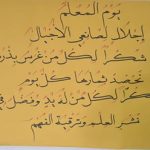 يَوْمُ الْمُعَلِّمِ
إِجْلَالٌ لِصَانِعِي الْأَجْيَالِ
شُكْرًا لِكُلِّ مَنْ غَرَسَ بِذْرَ
نَحْصُدُ ثِمَارَهَا كُلَّ يَوْمٍ
شُكْرًا لِكُلِّ مَنْ لَهُ يَدٌ وَفَضْلٌ فِي
نَشْرِ الْعِلْمِ وَتَرْقِيَةِ الْفَهْمِ